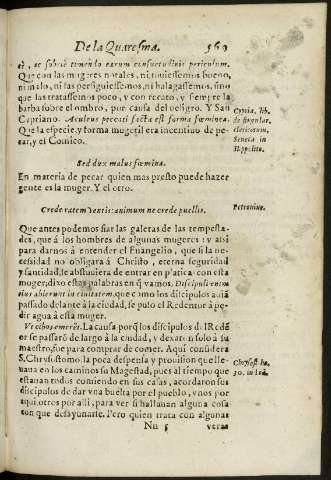 De la Quaresma. 569
tè, ac sobriè timendo earum consuetudinis periculum.
Que con las mugeres notales, ni tuuiessemos bueno,
ni malo, ni las persiguiessemos, ni halagassemos, sino
que las tratassemos poco, y con recato, y siempre la
barba sobre el ombro, por causa del peligro. Y San
Cypriano. Aculeus peccati facta est forma fœminea.
Que la especie, y forma mugeril era incentiuo de pe-
car, y el Comico.
Cypria. lib.
de singular.
clericorum.
Seneca in
Hippolito.
Sed dux malus fœmina.
En materia de pecar quien mas presto puede hazer
gente es la muger. Y el otro.
Crede ratem ventis: animum ne crede puellis.
Petronius.
Que antes podemos fiar las galeras de las tempesta-
des, que à los hombres de algunas mugeres: y assi
para darnos à entender el Euangelio, que si la ne-
cessidad no obligara à Christo, eterna seguridad
y santidad, se abstuuiera de entrar en platica con esta
muger, dixo estas palabras en q̃ vamos. Discipuli enim
eius abierunt in ciuitatem, que como los discipulos auiã
passado delante à la ciudad, se puso el Redentor à pe-
dir agua à esta muger.
Vt cibos emerēt. La causa porq̃ los discipulos d̃l Redē
tor se passarõ de largo à la ciudad, y dexaron solo à su
maestro, fue para comprar de comer. Aqui considera
S. Chrysostomo. la poca despensa, y prouision que lle-
uaua en los caminos su Magestad, pues al tiempo que
estauan todos comiendo en sus casas, acordaron sus
discipulos de dar vna buelta por el pueblo, vnos por
aqui, otros por alli, para ver si hallauan alguna cosa
con que desayunarse. Pero quien trata con algunas
Chrysost. ho.
30. in Ioã.
Nn 5 veras